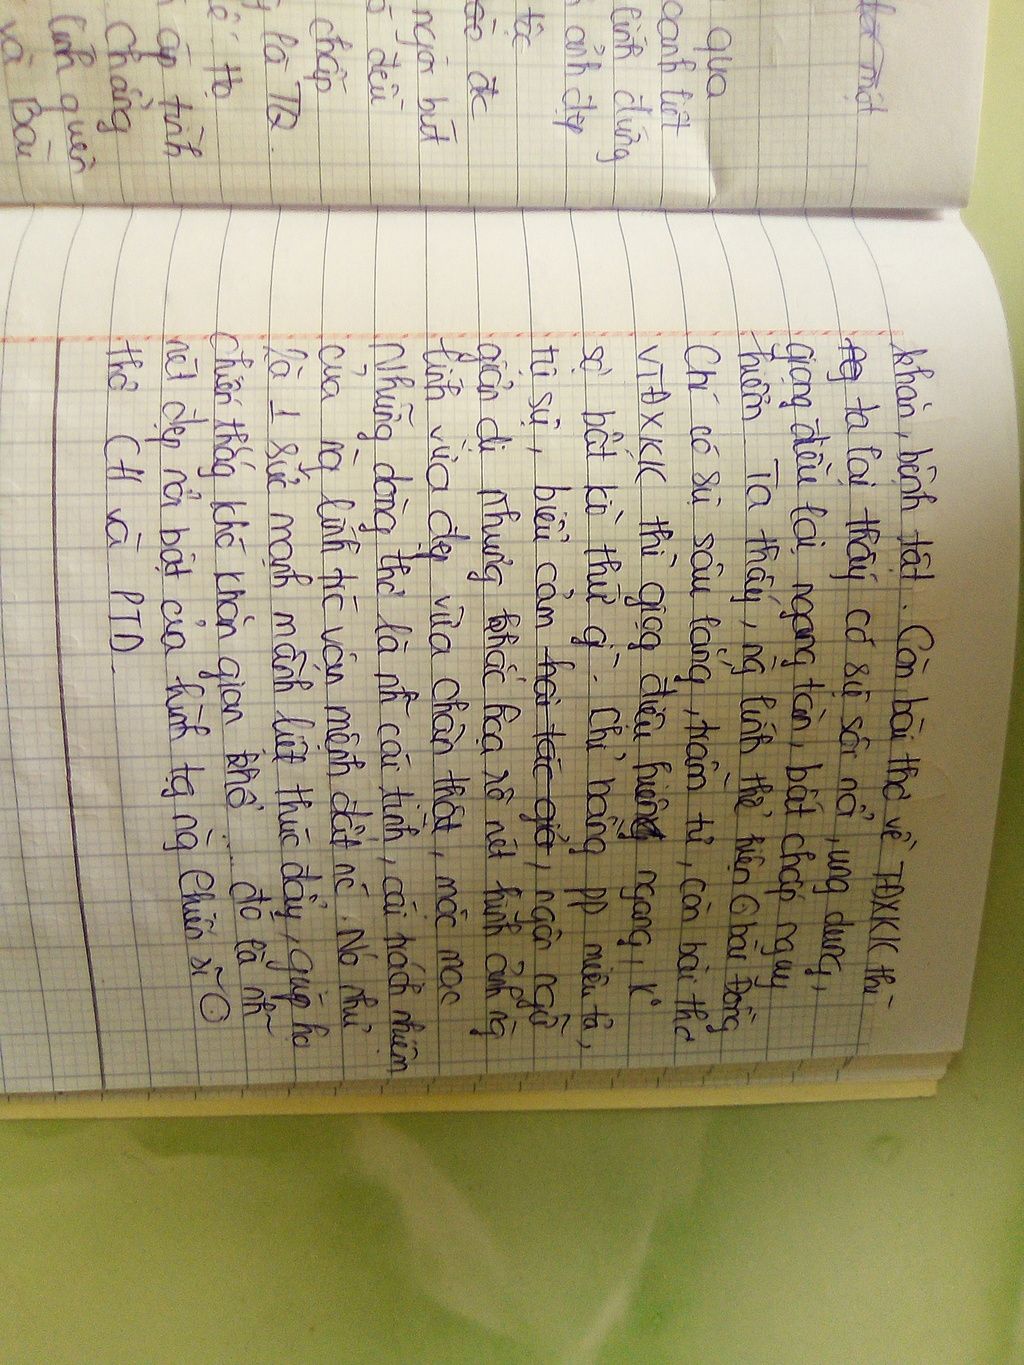 một
qua
oanh liệt
lính đứng
ảnh đẹp
tộc
đc
ngòi bút
đều
chấp
là TQ.
Họ
áp tình
chẳng
lính quên
và Bài
khăn, bệnh tật. Còn bài thơ về TĐXKK thì
ta lại thấy có sự sôi nổi, ung dung,
giọng điệu lại ngang tàn, bất chấp nguy
hiểm. Ta thấy, ng lính thể hiện ở bài Đồng
Chí có sự sâu lắng, trầm tư, còn bài thơ
về TĐXKK thì giọg điệu hiêng ngang, k°
sợ bất kì thứ gì. Chỉ bằng pp miêu tả,
tự sự, biểu cảm hai tác giả, ngôn ngữ
giản dị nhưng khắc họa rõ nét hình ảnh ng
lính vừa đẹp vừa chân thật, mộc mạc
Những dòng thơ là nh~ cái tình, cái trách nhiệm
của ng lính trc vận mệnh đất nc. Nó như
là 1 sức mạnh mãnh liệt thúc đẩy, giúp họ
chiến thắg khó khăn gian khổ ... đó là nh~
nét đẹp nổi bật của hình tg ng chiến sĩ ở
thơ CH và PTD.